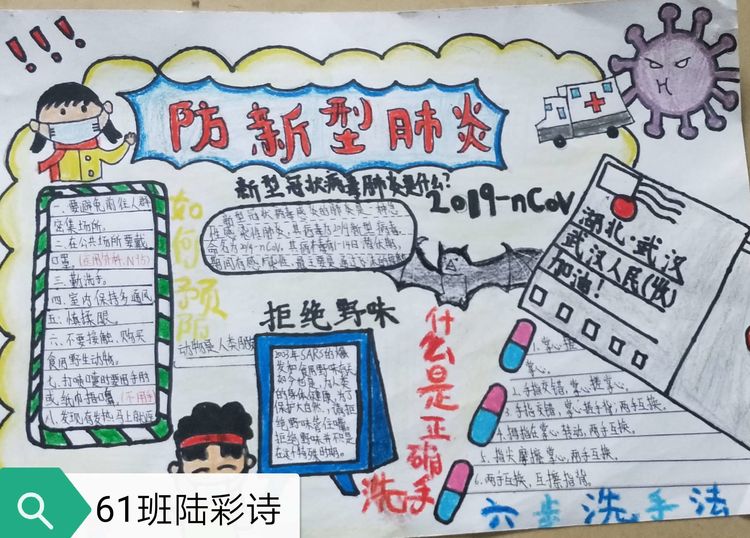 !!!
防新型肺炎
新型冠状病毒肺炎是什么?
2019-nCoV
如何预防
一、要避免前往人群
密集场所。
二、在公共场所要戴
口罩。
三、勤洗手。
四、室内保持多通风
五、慎揉眼。
六、不要接触、购买
食用野生动物。
七、打喷嚏时要用手肘
或纸巾捂嘴
八、发现有发热马上
新型冠状病毒感染的肺炎是一种急
性感染性肺炎,其病毒为2019新型病毒,
命名为2019-nCoV,其病毒有1-14日潜伏期,
拒绝野味
动物是人类
2003年SARS的爆
发和食用野味有关
如今也是,为人类
的身体健康,为了
保护大自然,请拒
绝野味管住嘴。
拒绝野味并不只是
在这个特殊时期。
湖北·武汉
武汉人民(收)
加油!
什么是正确洗手
1.掌心搓
掌。
2.手指交错,掌心搓掌心。
3.手指交错,掌心搓手背,两手互换。
4.拇指在掌心转动,两手互换。
5.指尖摩擦掌心,两手互换。
6.两手互换,互擦指背。
六步洗手法
61班陆彩诗